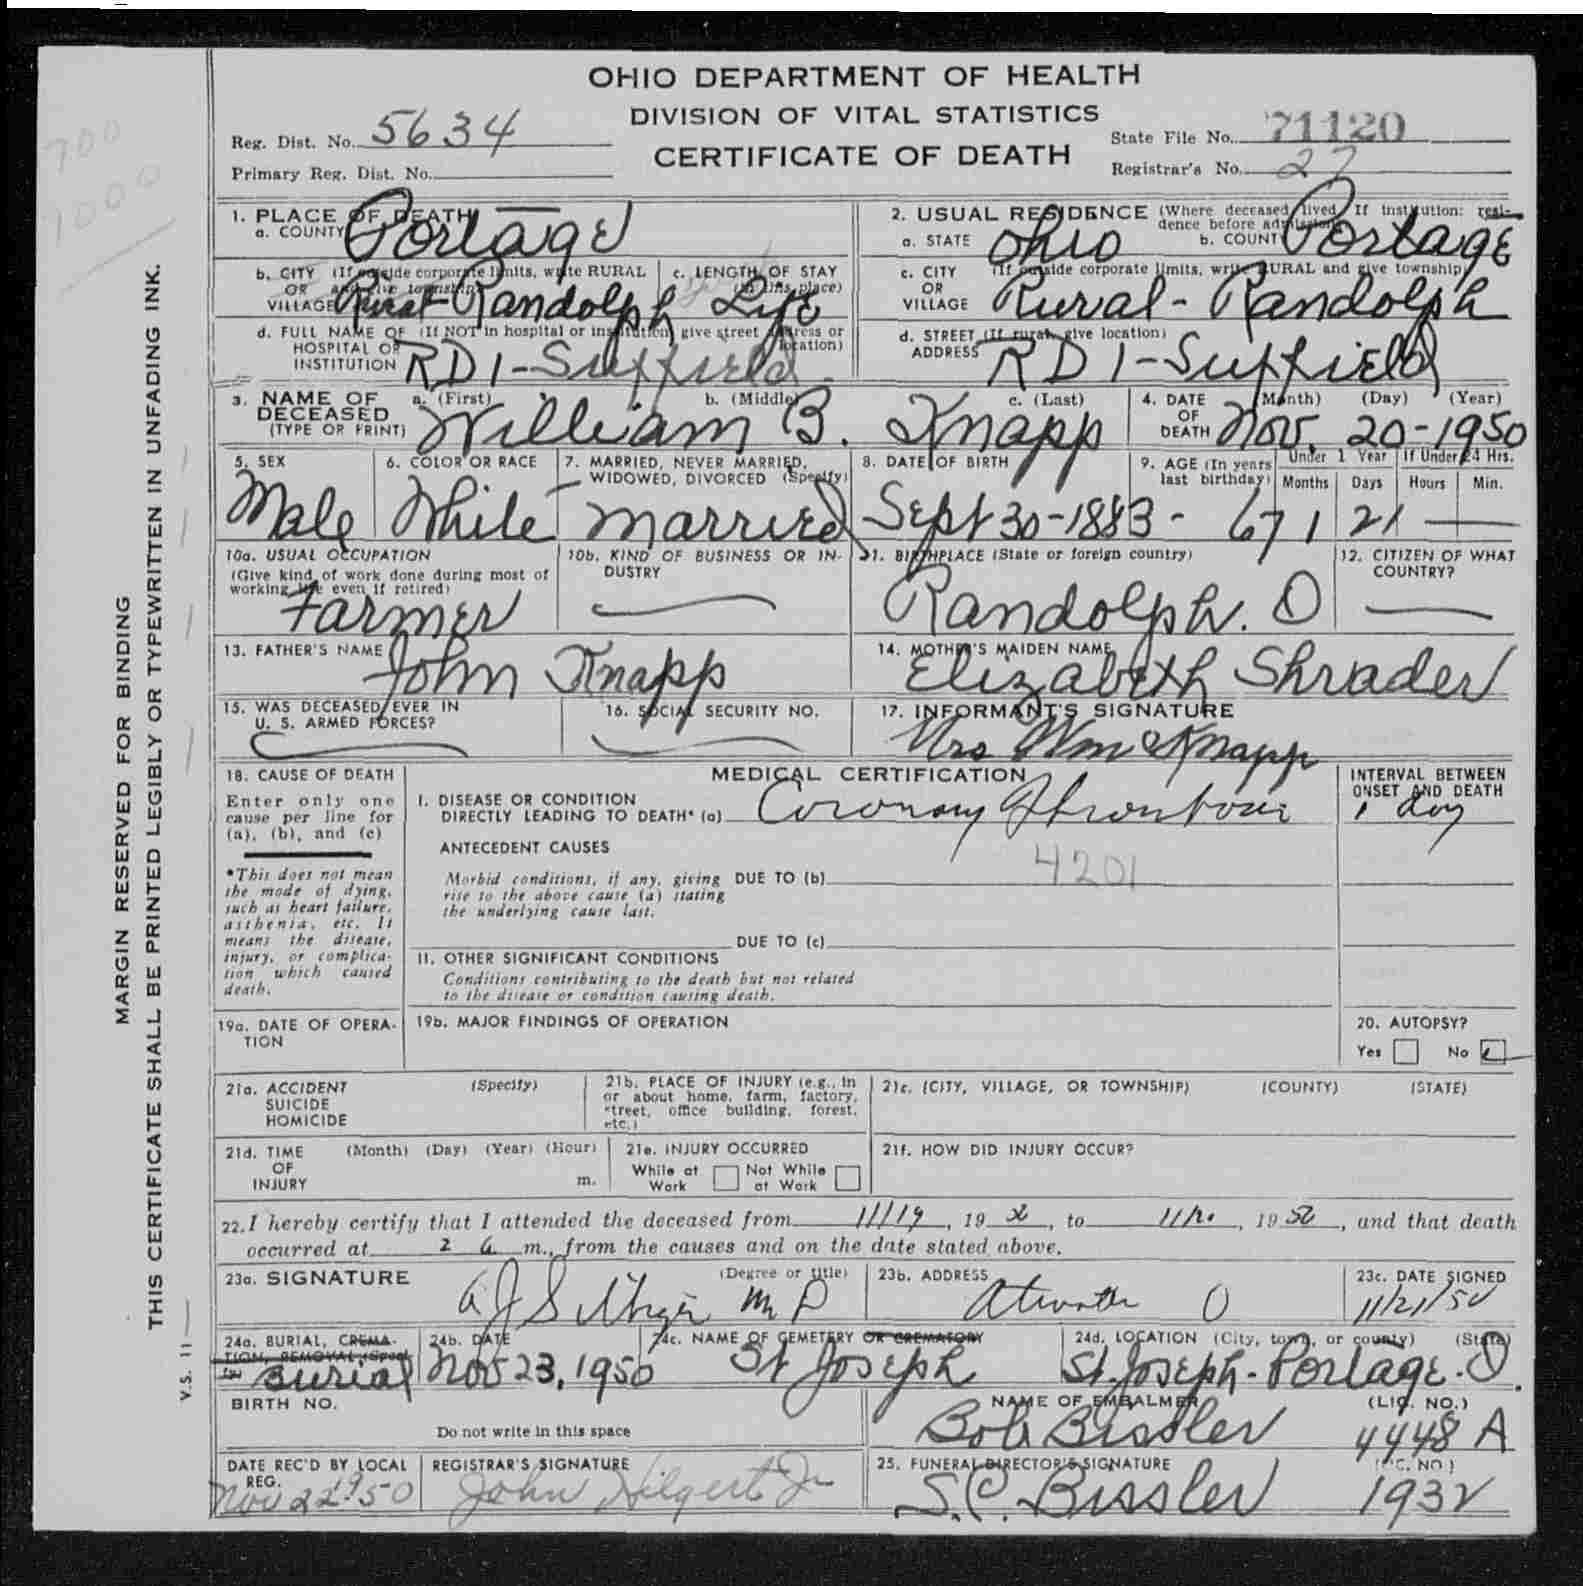 OHIO DEPARTMENT OF HEALTH
DIVISION OF VITAL STATISTICS
CERTIFICATE OF DEATH
Reg. Dist. No. 5634
Primary Reg. Dist. No.
State File No. 71120
Registrar's No. 27
MARGIN RESERVED FOR BINDING
THIS CERTIFICATE SHALL BE PRINTED LEGIBLY OR TYPEWRITTEN IN UNFADING INK.
V.S. 11
1. PLACE OF DEATH
a. COUNTY Portage
b. CITY (If outside corporate limits, write RURAL
OR and give township)
VILLAGE Rural-Randolph
c. LENGTH OF STAY
(in this place)
Life
d. FULL NAME OF (If NOT in hospital or institution, give street address or
HOSPITAL OR location)
INSTITUTION RD 1-Suffield
2. USUAL RESIDENCE (Where deceased lived. If institution: resi-
dence before admission)
a. STATE Ohio b. COUNTY Portage
c. CITY (If outside corporate limits, write RURAL and give township)
OR
VILLAGE Rural-Randolph
d. STREET (If rural, give location)
ADDRESS RD 1-Suffield
3. NAME OF a. (First) b. (Middle) c. (Last)
DECEASED
(TYPE OR PRINT) William B. Knapp
4. DATE (Month) (Day) (Year)
OF
DEATH Nov. 20-1950
5. SEX
Male
6. COLOR OR RACE
White
7. MARRIED, NEVER MARRIED,
WIDOWED, DIVORCED (Specify)
Married
8. DATE OF BIRTH
Sept 30-1883-
9. AGE (In years
last birthday)
67
Under 1 Year
Months Days
1 21
If Under 24 Hrs.
Hours Min.
10a. USUAL OCCUPATION
(Give kind of work done during most of
working life even if retired)
Farmer
10b. KIND OF BUSINESS OR IN-
DUSTRY
11. BIRTHPLACE (State or foreign country)
Randolph. O
12. CITIZEN OF WHAT
COUNTRY?
13. FATHER'S NAME
John Knapp
14. MOTHER'S MAIDEN NAME
Elizabeth Shrader
15. WAS DECEASED EVER IN
U. S. ARMED FORCES?
16. SOCIAL SECURITY NO.
17. INFORMANT'S SIGNATURE
Mrs Wm Knapp
18. CAUSE OF DEATH
Enter only one
cause per line for
(a), (b), and (c)
*This does not mean
the mode of dying,
such as heart failure,
asthenia, etc. It
means the disease,
injury, or complica-
tion which caused
death.
MEDICAL CERTIFICATION
I. DISEASE OR CONDITION
DIRECTLY LEADING TO DEATH* (a) Coronary Thrombosis
ANTECEDENT CAUSES
4201
Morbid conditions, if any, giving DUE TO (b)
rise to the above cause (a) stating
the underlying cause last.
DUE TO (c)
II. OTHER SIGNIFICANT CONDITIONS
Conditions contributing to the death but not related
to the disease or condition causing death.
INTERVAL BETWEEN
ONSET AND DEATH
1 day
19a. DATE OF OPERA-
TION
19b. MAJOR FINDINGS OF OPERATION
20. AUTOPSY?
Yes No
21a. ACCIDENT (Specify)
SUICIDE
HOMICIDE
21b. PLACE OF INJURY (e.g., in
or about home, farm, factory,
street, office building, forest,
etc.)
21c. (CITY, VILLAGE, OR TOWNSHIP) (COUNTY) (STATE)
21d. TIME (Month) (Day) (Year) (Hour)
OF
INJURY m.
21e. INJURY OCCURRED
While at Not While
Work at Work
21f. HOW DID INJURY OCCUR?
22. I hereby certify that I attended the deceased from 11/19, 19 50, to 11/20, 1950, and that death
occurred at 2 a m., from the causes and on the date stated above.
23a. SIGNATURE (Degree or title)
A J M D
23b. ADDRESS
Atwater O
23c. DATE SIGNED
11/21/50
24a. BURIAL, CREMA-
TION, REMOVAL (Speci-
fy) Burial
24b. DATE
Nov 23, 1950
24c. NAME OF CEMETERY OR CREMATORY
St Joseph
24d. LOCATION (City, town, or county) (State)
St. Joseph-Portage-O.
BIRTH NO.
Do not write in this space
NAME OF EMBALMER (LIC. NO.)
Bob Bissler 4448 A
DATE REC'D BY LOCAL
REG.
Nov 22 1950
REGISTRAR'S SIGNATURE
John Hilgert Jr
25. FUNERAL DIRECTOR'S SIGNATURE (LIC. NO.)
S.C. Bissler 1932